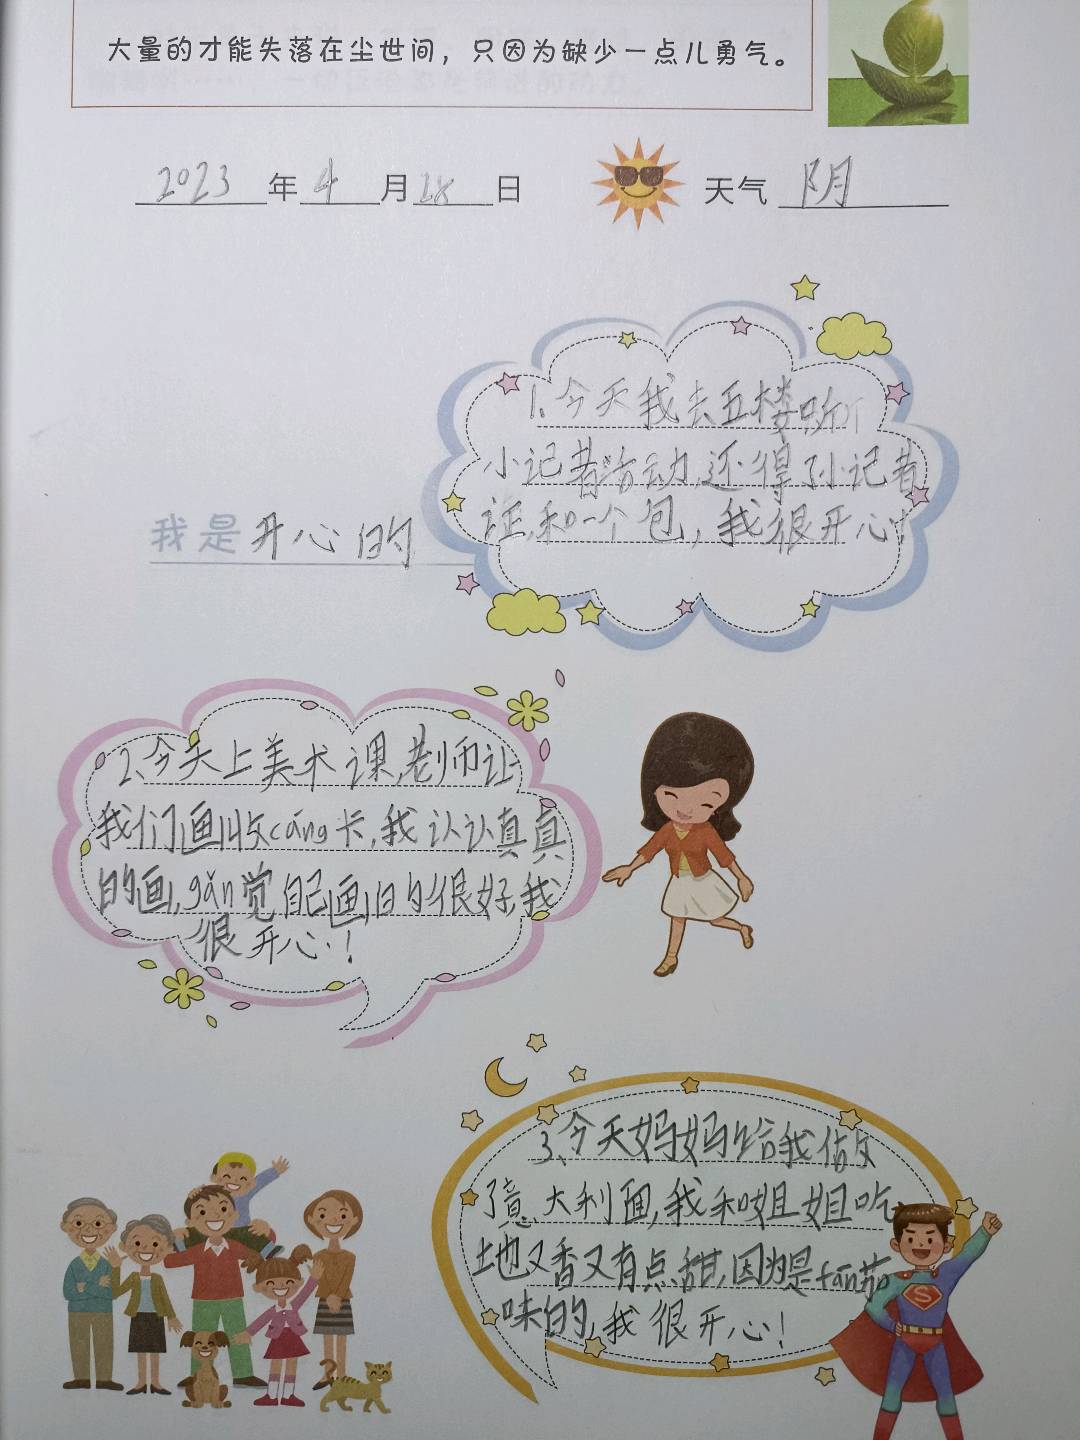 大量的才能失落在尘世间，只因为缺少一点儿勇气。
2023年4月28日 天气 阴
1、今天我去五楼听
小记者活动,还得了小记者
证和一个包，我很开心！
我是开心的
2、今天上美术课,老师让
我们画收cáng卡,我认认真真
的画,gǎn觉自己画的很好,我
很开心！
3、今天妈妈给我做
了意大利面,我和姐姐吃
地又香又有点甜,因为是fān茄
味的,我很开心！
S